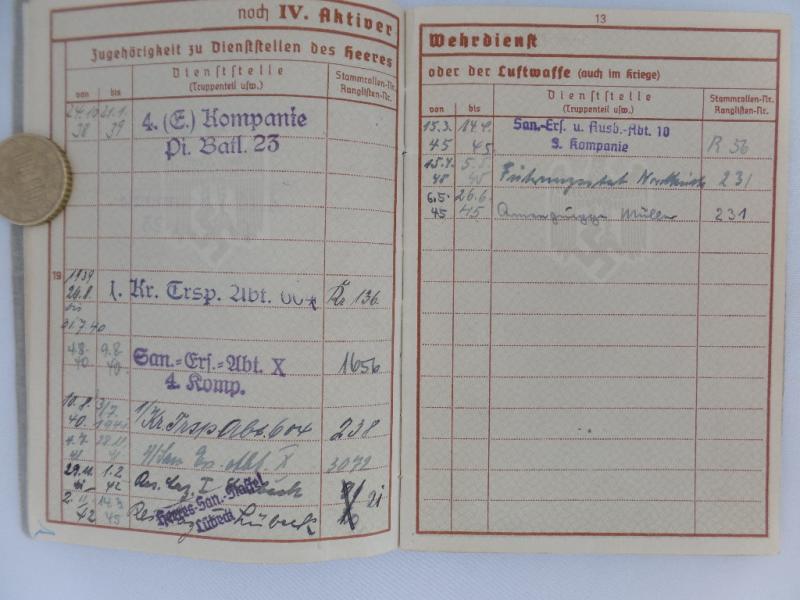 noch IV. Aktiver
Zugehörigkeit zu Dienststellen des Heeres
von bis Dienststelle (Truppenteil usw.) Stammrollen-Nr. Ranglisten-Nr.
24.10. 38 21.1. 39 4. (E.) Kompanie
Pi. Batl. 23
19
1939
26.8. 1. Kr. Trsp. Abt. 604 Kr 136
bis
31.7.40
4.8. 40 9.8. 40 San.-Ers.-Abt. X 1656
4. Komp.
10.8. 40. 3/7. 1941 1/Kr Trsp Abt. 604 238
4.7. 41 28.11. 41 X 3072
29.11. 41 1.2. 42 Res. Laz. I 21
Heeres-San.-Staffel
2. 42 14.3. 45 Res. Lübeck
Lübeck
13
Wehrdienst
oder der Luftwaffe (auch im Kriege)
von bis Dienststelle (Truppenteil usw.) Stammrollen-Nr. Ranglisten-Nr.
15.3. 45 14.4. 45 San.-Ers. u. Ausb.-Abt. 10 R 56
3. Kompanie
15.4. 45 5.5. 45 Führungsstab 231
6.5. 45 26.6. 45 Müller 231